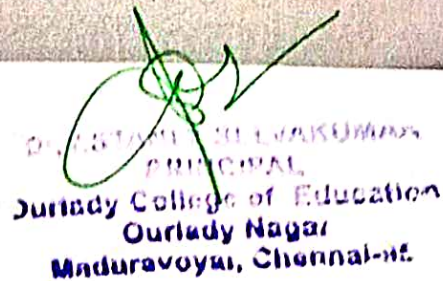 SELVAKUMAR
PRINCIPAL
Ourlady College of Education
Ourlady Nagar
Maduravoyal, Chennai-95.